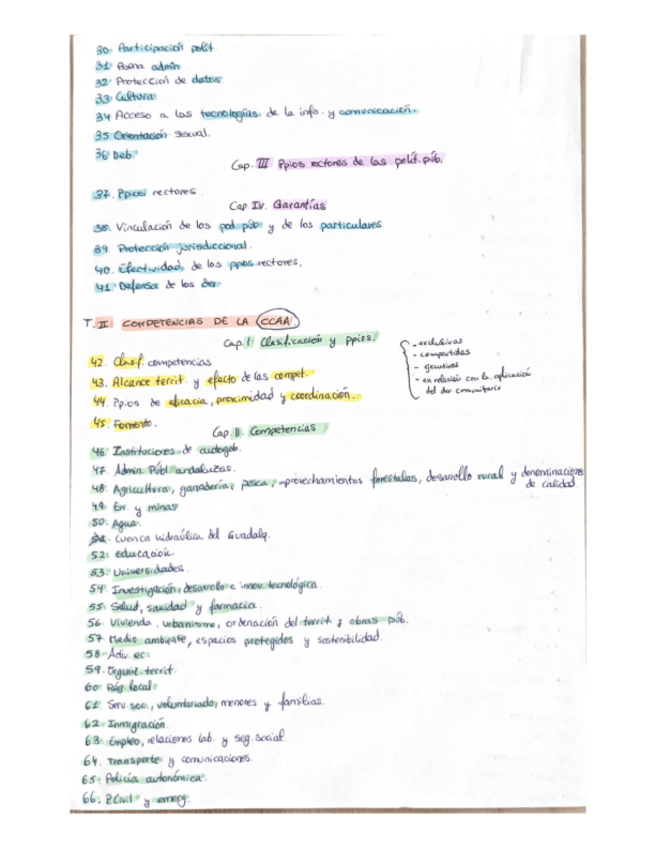 30. Participación polít
31. Buena admin
32. Protección de datos
33. Cultura.
34 Acceso a las tecnologías de la info. y comunicación.
35 Orientación sexual.
36 Deb.
Cap. III Ppios rectores de las polít. púb.
37. Ppios rectores.
Cap. IV. Garantías
38. Vinculación de los pod. púb. y de los particulares.
39. Protección jurisdiccional.
40. Efectividad de los ppios rectores.
41. Defensa de los der.
T. II COMPETENCIAS DE LA CCAA
Cap. I Clasificación y ppios.
- exclusivas
- compartidas
- ejecutivas
- en relación con la aplicación
del der comunitario
42. Clasif. competencias
43. Alcance territ. y efecto de las compet.
44. Ppios de eficacia, proximidad y coordinación.
45. Fomento.
Cap. II Competencias
46 Instituciones de autogob.
47. Admin. Públ andaluzas.
48. Agricultura, ganadería, pesca, aprovechamientos forestales, desarrollo rural y denominaciones
de calidad.
49. En y minas
50. Agua.
51. Cuenca hidráulica del Guadalq.
52. educación.
53. Universidades.
54. Investigación, desarrollo e innov. tecnológica.
55. Salud, sanidad y farmacia.
56. Vivienda, urbanismo, ordenación del territ y obras púb.
57 Medio ambiente, espacios protegidos y sostenibilidad.
58. Activ. ec.
59. Organiz. territ.
60. Rég. local
61. Serv. soc., voluntariado, menores y familias.
62. Inmigración.
63. Empleo, relaciones lab. y seg. social.
64. Transporte y comunicaciones.
65. Policía autonómica.
66. P. Civil y emerg.